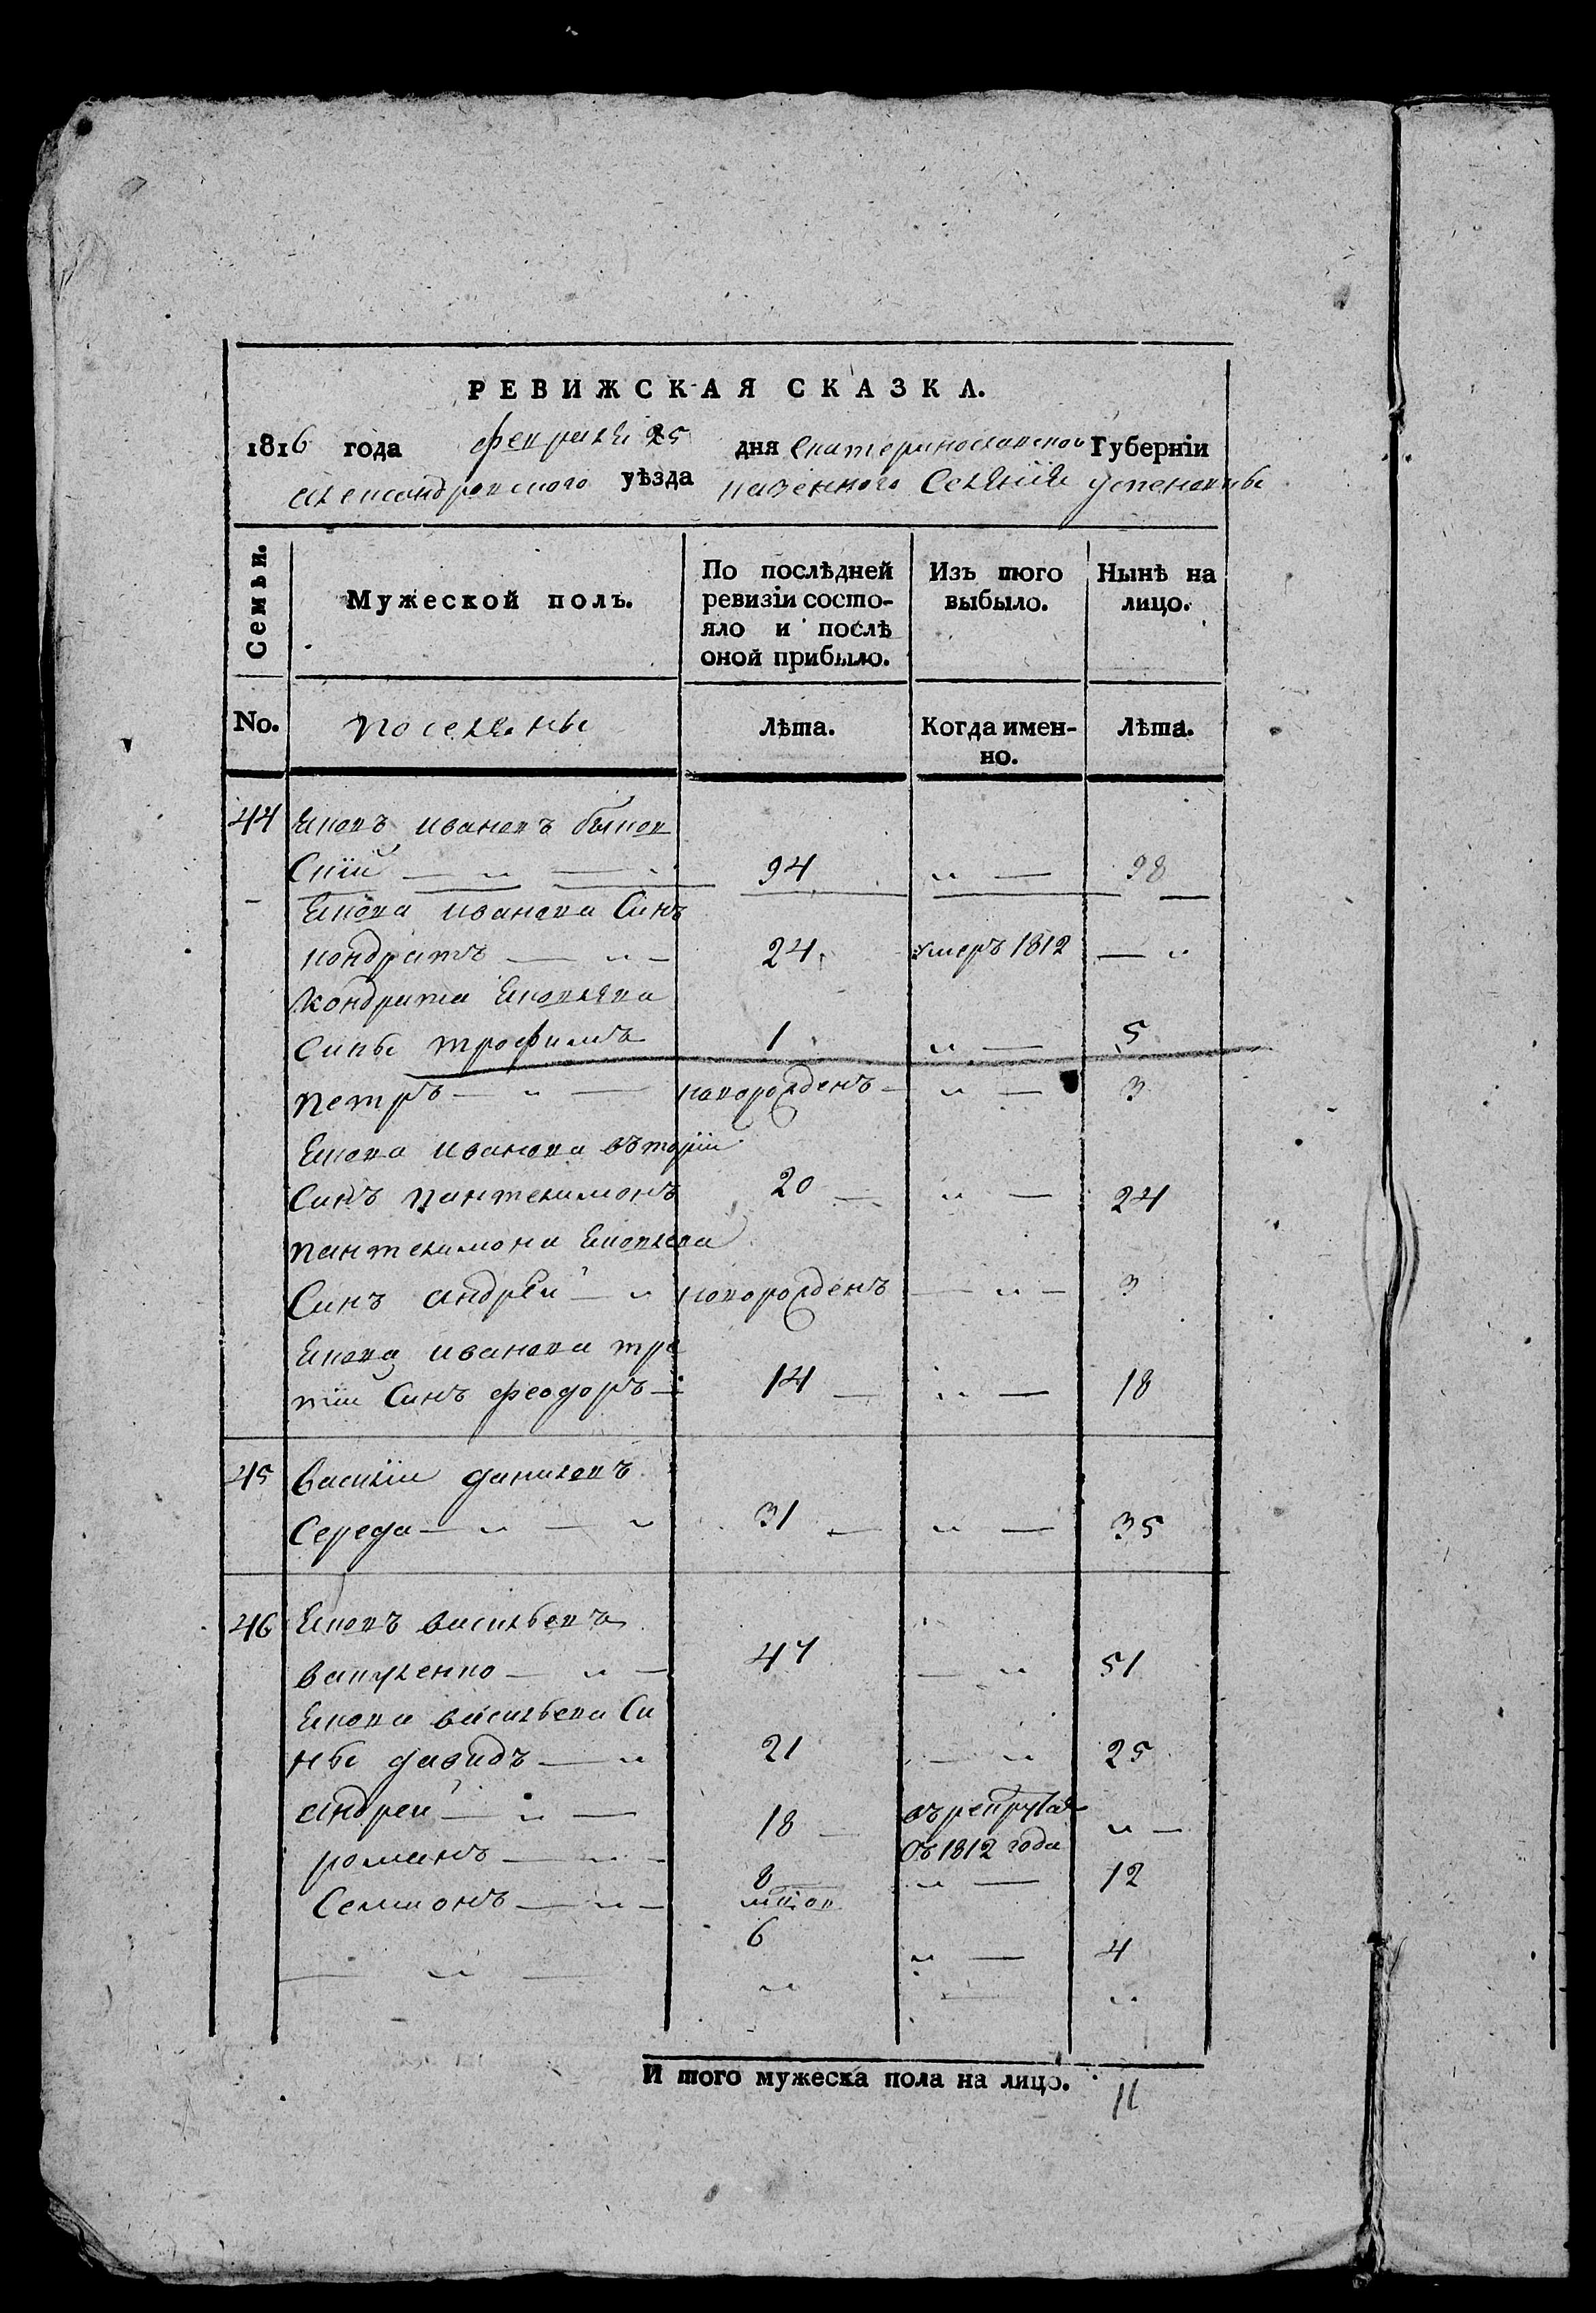 РЕВИЖСКАЯ СКАЗКА.
1816 года февраля 25 дня Екатеринославской Губерніи
александровского уѣзда казенного Селенїя успеновкы
Семьи. Мужеской полъ. По послѣдней ревизіи состояло и послѣ оной прибыло. Изъ того выбыло. Нынѣ на лицо.
No. поселяны Лѣта. Когда именно. Лѣта.
44 Яковъ ивановъ быков
Скїй — „ — „ 94 „ — 98
Якова иванова Синъ
кондратъ — „ — 24 умеръ 1812 — „
кондрата Яковлева
Сины трофимъ 1 „ — 5
петръ — „ — новорожденъ — „ — 3
Якова иванова вторїи
Синъ пантелимонъ 20 — „ — 24
пантелимона Яковлева
Синъ андрей — „ новорожденъ — „ — 3
Якова иванова тре
тїи Синъ феодоръ — 14 — „ — 18
45 василїи даниловъ
Середа — „ — „ 31 — „ — 35
46 Яковъ васильевъ
вакуленко — „ — 47 — „ 51
Якова васильева Си
ны давидъ — „ 21 — „ 25
андрей — „ — 18 — въ рекрутах „ —
Съ 1812 года
романъ — „ — 8 „ — 12
Семионъ — „ — 6 „ — 4
— „ — „ — „
И того мужеска пола на лицо. 11